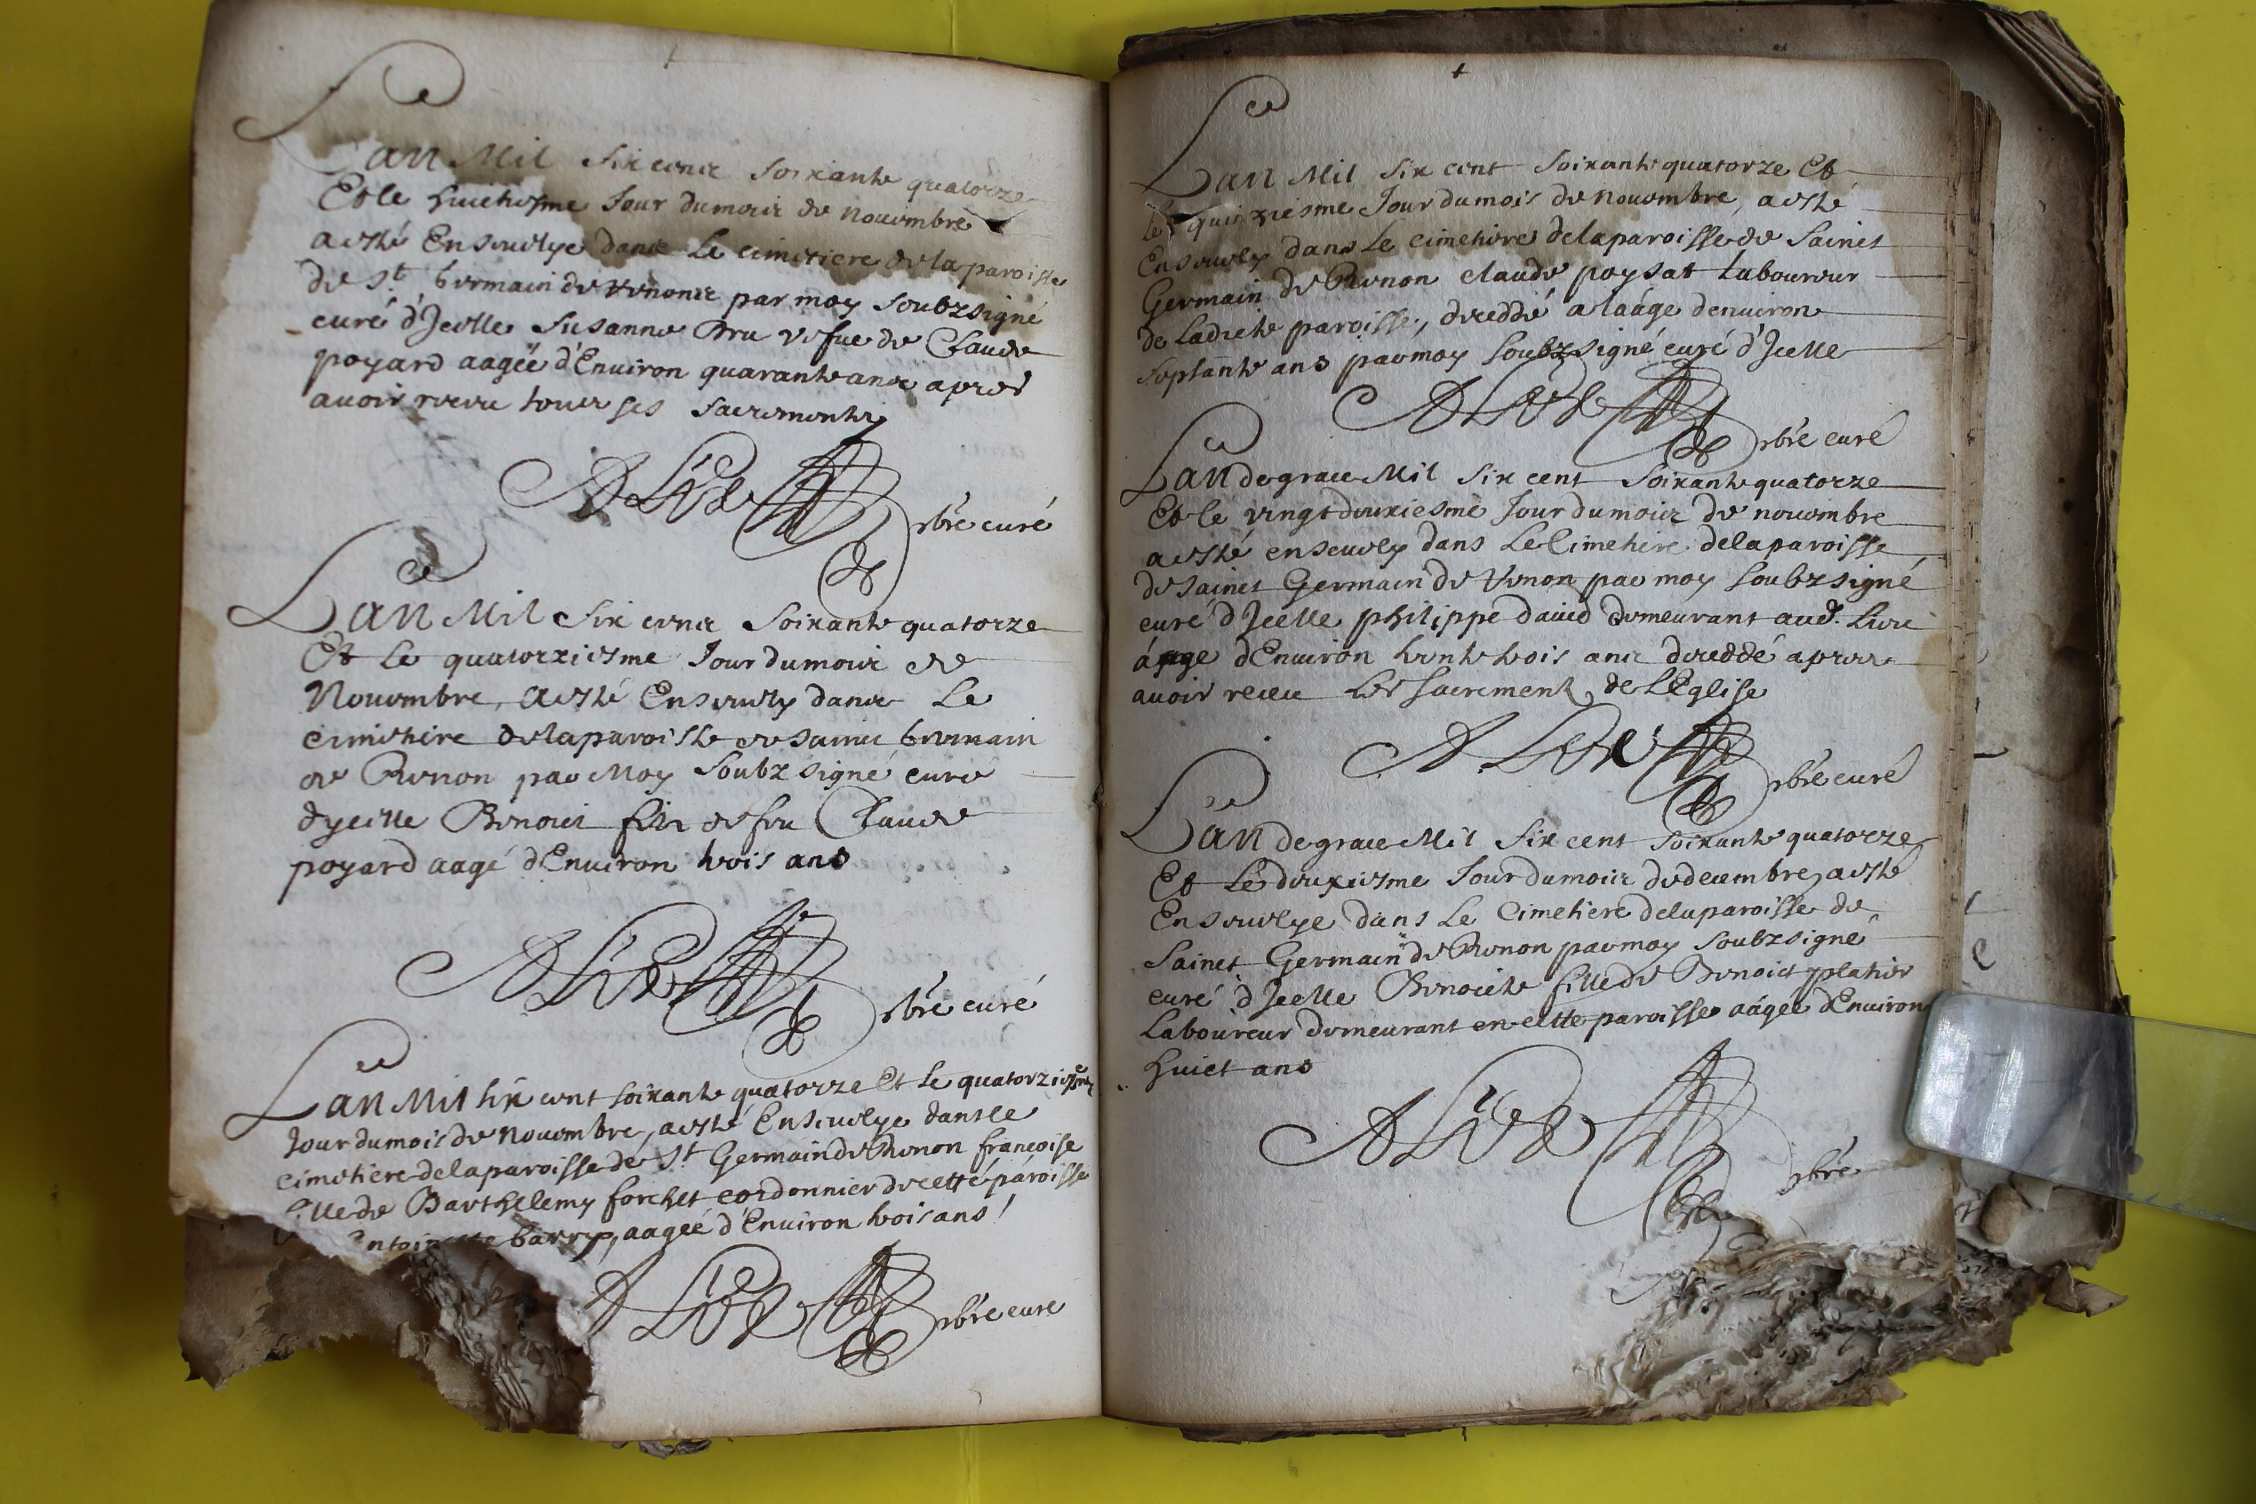 Lan Mil six cens soixante quatorze
Et le huictiesme Jour du mois de nouembre
a esté Ensevelye dans Le cimetiere de la paroisse
de St. Germain de Renons par moy soubzsigné
curé d'Jcelle Susanne Bru vefue de Claude
poyard aagée d'Enuiron quarante ans apres
auoir receu tous ses sacrements
pbre curé
Lan Mil Six cens Soixante quatorze
Et Le quatorziesme Jour du mois de
Nouembre, a esté Ensevely dans Le
cimetiere de la paroisse de sainct Germain
de Renon par Moy Soubzsigné curé
dycelle Benoict filz de feu Claude
poyard aagé d'Enuiron trois ans
pbre curé
Lan Mil six cent soixante quatorze Et le quatorziesme
Jour du mois de nouembre, a esté Ensevelye dans le
cimetiere de la paroisse de St Germain de Renon francoise
fille de Barthelemy forchet cordonnier de cette paroisse
Entoinette barry, aageé d'Enuiron trois ans
pbre curé
Lan Mil six cent soixante quatorze Et
le quinziesme Jour du mois de nouembre, a esté
Ensevely dans Le cimetiere de la paroisse de Sainct
Germain de Renon claude poysat Laboureur
de Ladicte paroisse, decedé a laáge denuiron
septante ans par moy soubzsigné curé d'Jcelle
pbre curé
Lan de grace Mil Six cent Soixante quatorze
Et le vingt deuxiesme Jour du mois de nouembre
a esté ensevely dans Le Cimetiere de la paroisse
de Sainct Germain de Renon par moy soubzsigné
curé d'Jcelle philippe dauid demeurant aud.
áage d'Enuiron trente trois ans decedé apres
auoir receu les sacrements de L'Eglise
pbre curé
Lan de grace Mil Six cent soixante quatorze
Et Le deuxiesme Jour du mois de decembre, a esté
Ensevelye dans Le Cimetiere de la paroisse de
Sainct Germain de Renon par moy soubzsigné
curé d'Jcelle Benoicte fille de Benoict platier
Laboureur demeurant en cette paroisse aágée d'Enuiron
huict ans
pbre